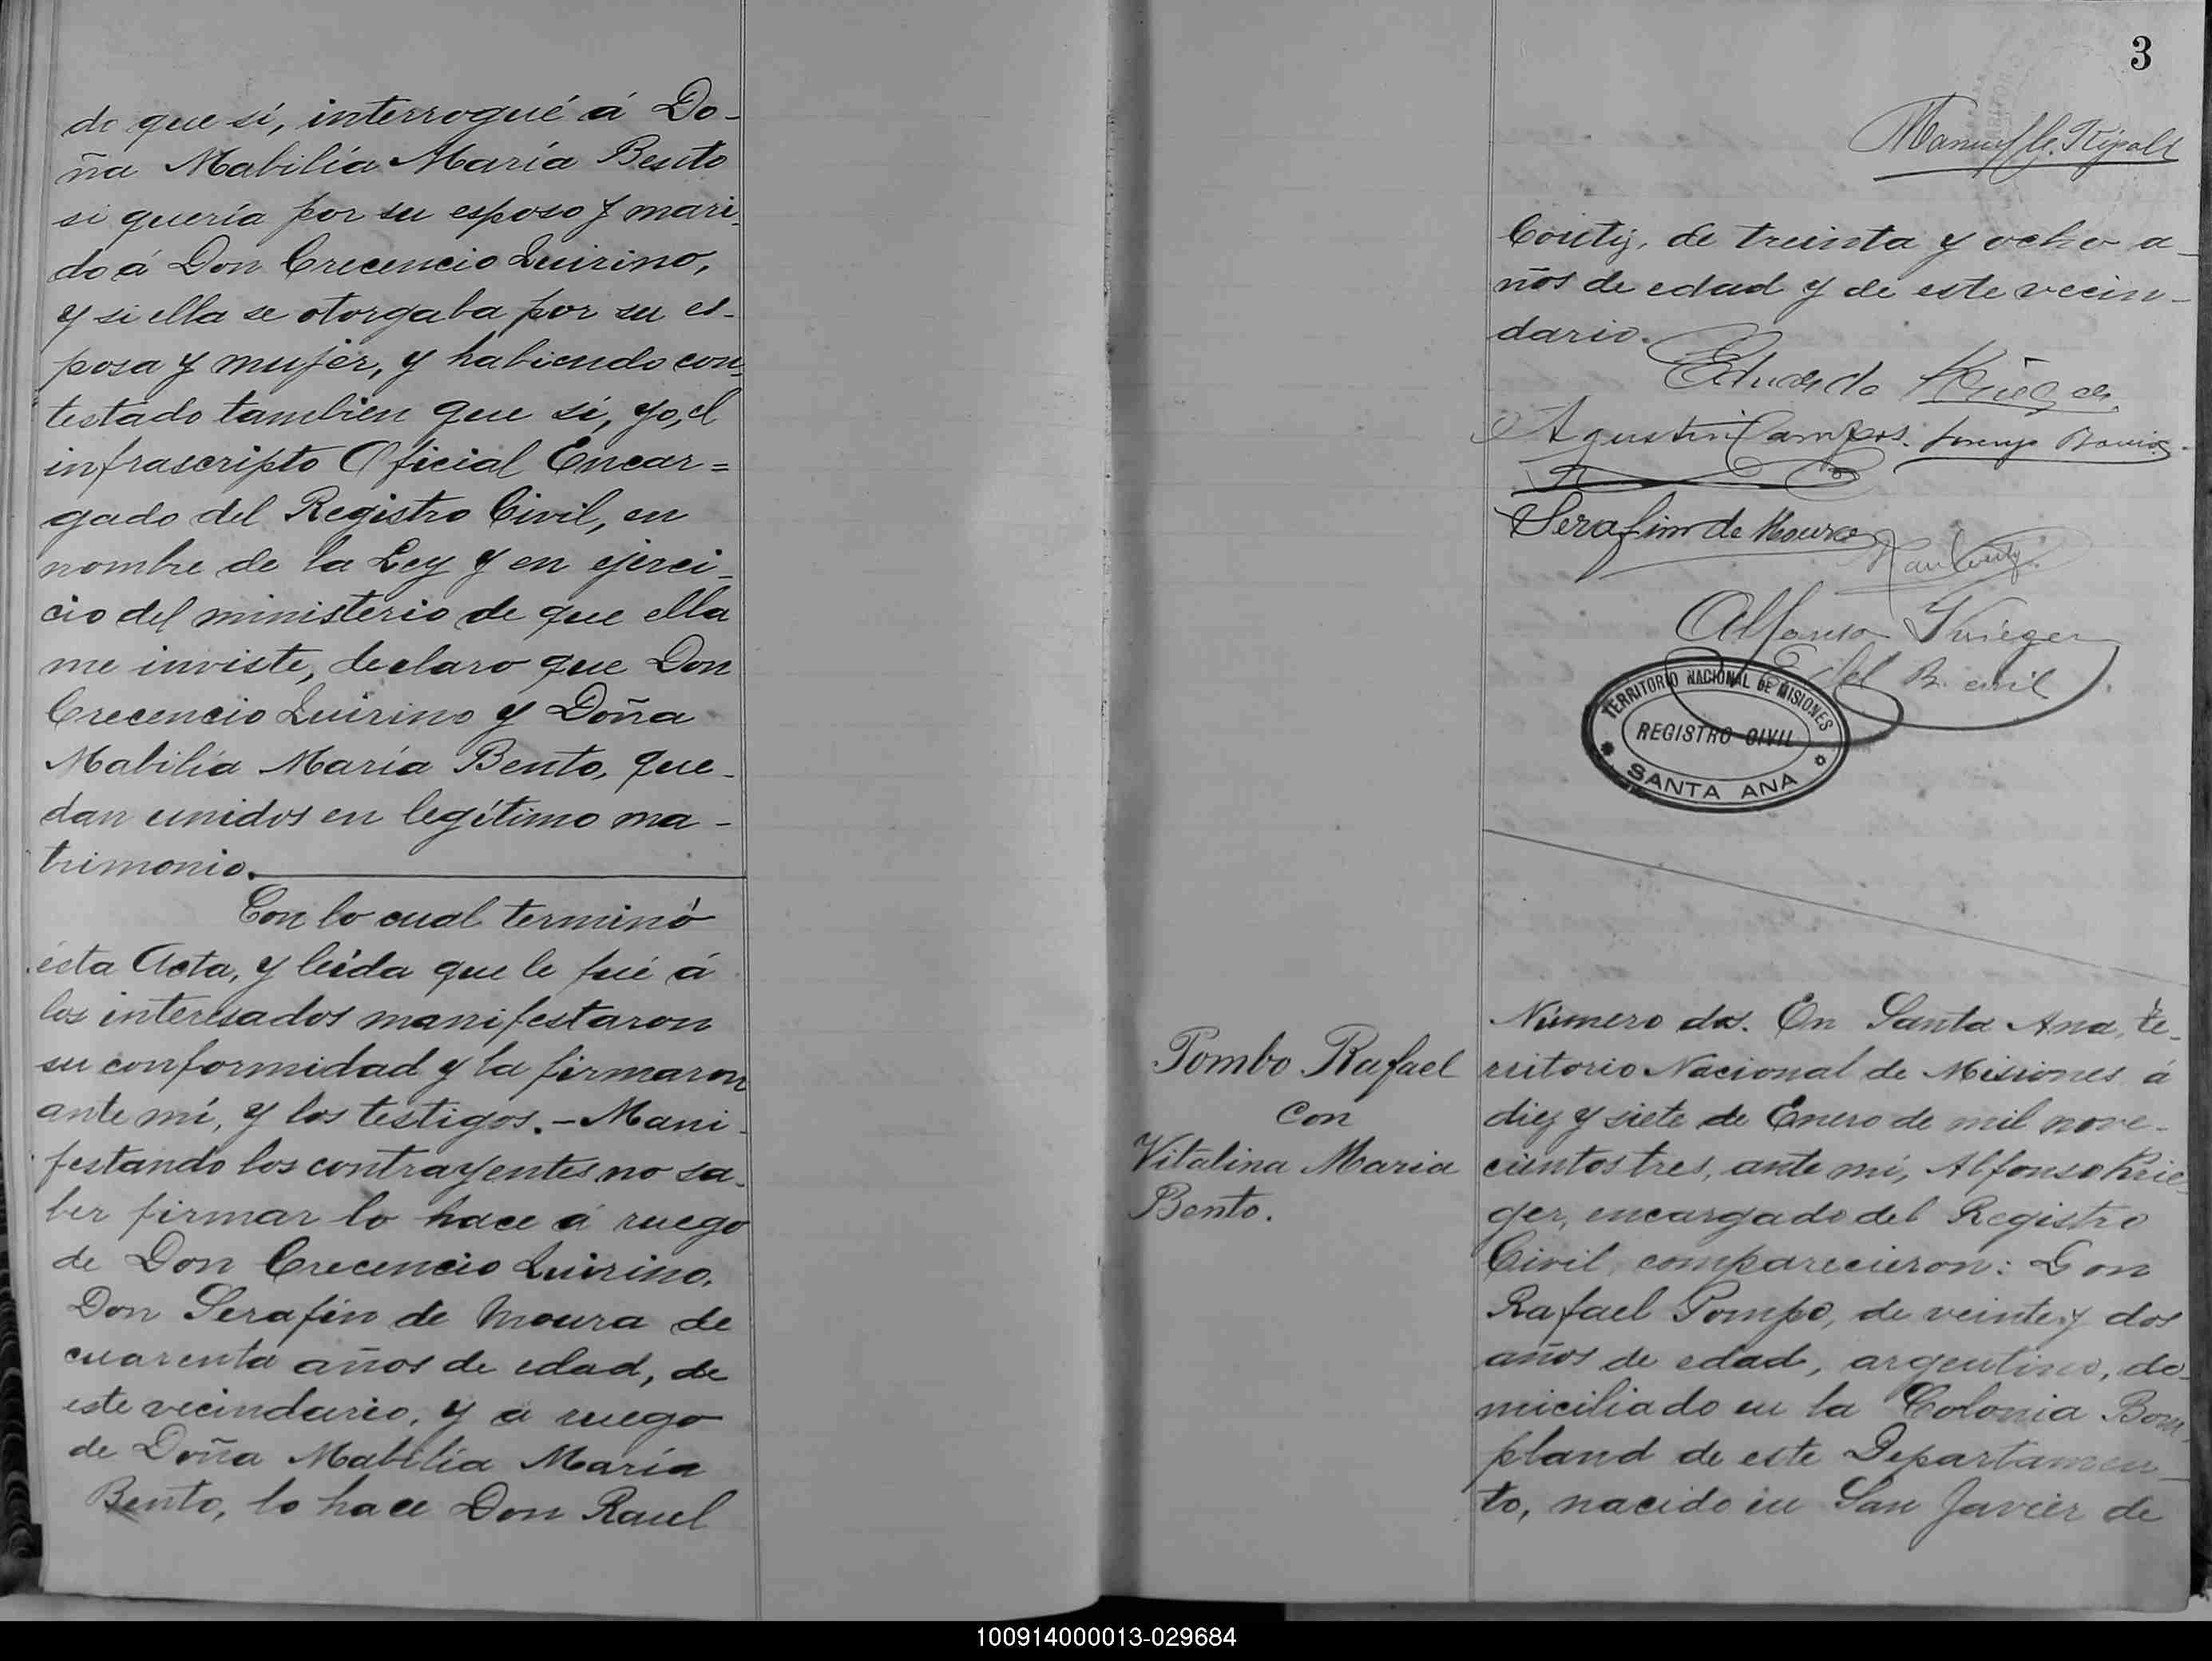 de que sí, interrogué á Do-
ña Mabilia María Bento
si quería por su esposo y mari-
do á Don Crecencio Quirino,
y si ella se otorgaba por su es-
posa y mujer, y habiendo con-
testado tambien que sí, yo, el
infrascripto Oficial Encar=
gado del Registro Civil, en
nombre de la Ley y en ejerci-
cio del ministerio de que ella
me inviste, declaro que Don
Crecencio Quirino y Doña
Mabilia María Bento, que-
dan unidos en legítimo ma-
trimonio.
Con lo cual terminó
ésta Acta, y leida que le fué á
los interesados manifestaron
su conformidad y la firmaron
ante mí, y los testigos.- Mani-
festando los contrayentes no sa-
ber firmar lo hace á ruego
de Don Crecencio Quirino,
Don Serafin de Moura de
cuarenta años de edad, de
este vecindario, y a ruego
de Doña Mabilia María
Bento, lo hace Don Raul
3
Couty, de treinta y ocho a-
ños de edad y de este vecin-
dario.
Eduardo
Agustin Campos.
Serafim de Moura
Alfonso Krieger
E. del R. civil
TERRITORIO NACIONAL DE MISIONES
REGISTRO CIVIL
SANTA ANA
Pombo Rafael
con
Vitalina Maria
Bento.
Número dos. En Santa Ana, te-
rritorio Nacional de Misiones á
diez y siete de Enero de mil nove-
cientos tres, ante mí, Alfonso Krie-
ger, encargado del Registro
Civil, comparecieron: Don
Rafael Pompo, de veinte y dos
años de edad, argentino, do-
miciliado en la Colonia Bom-
pland de este Departamen-
to, nacido en San Javier de
100914000013-029684